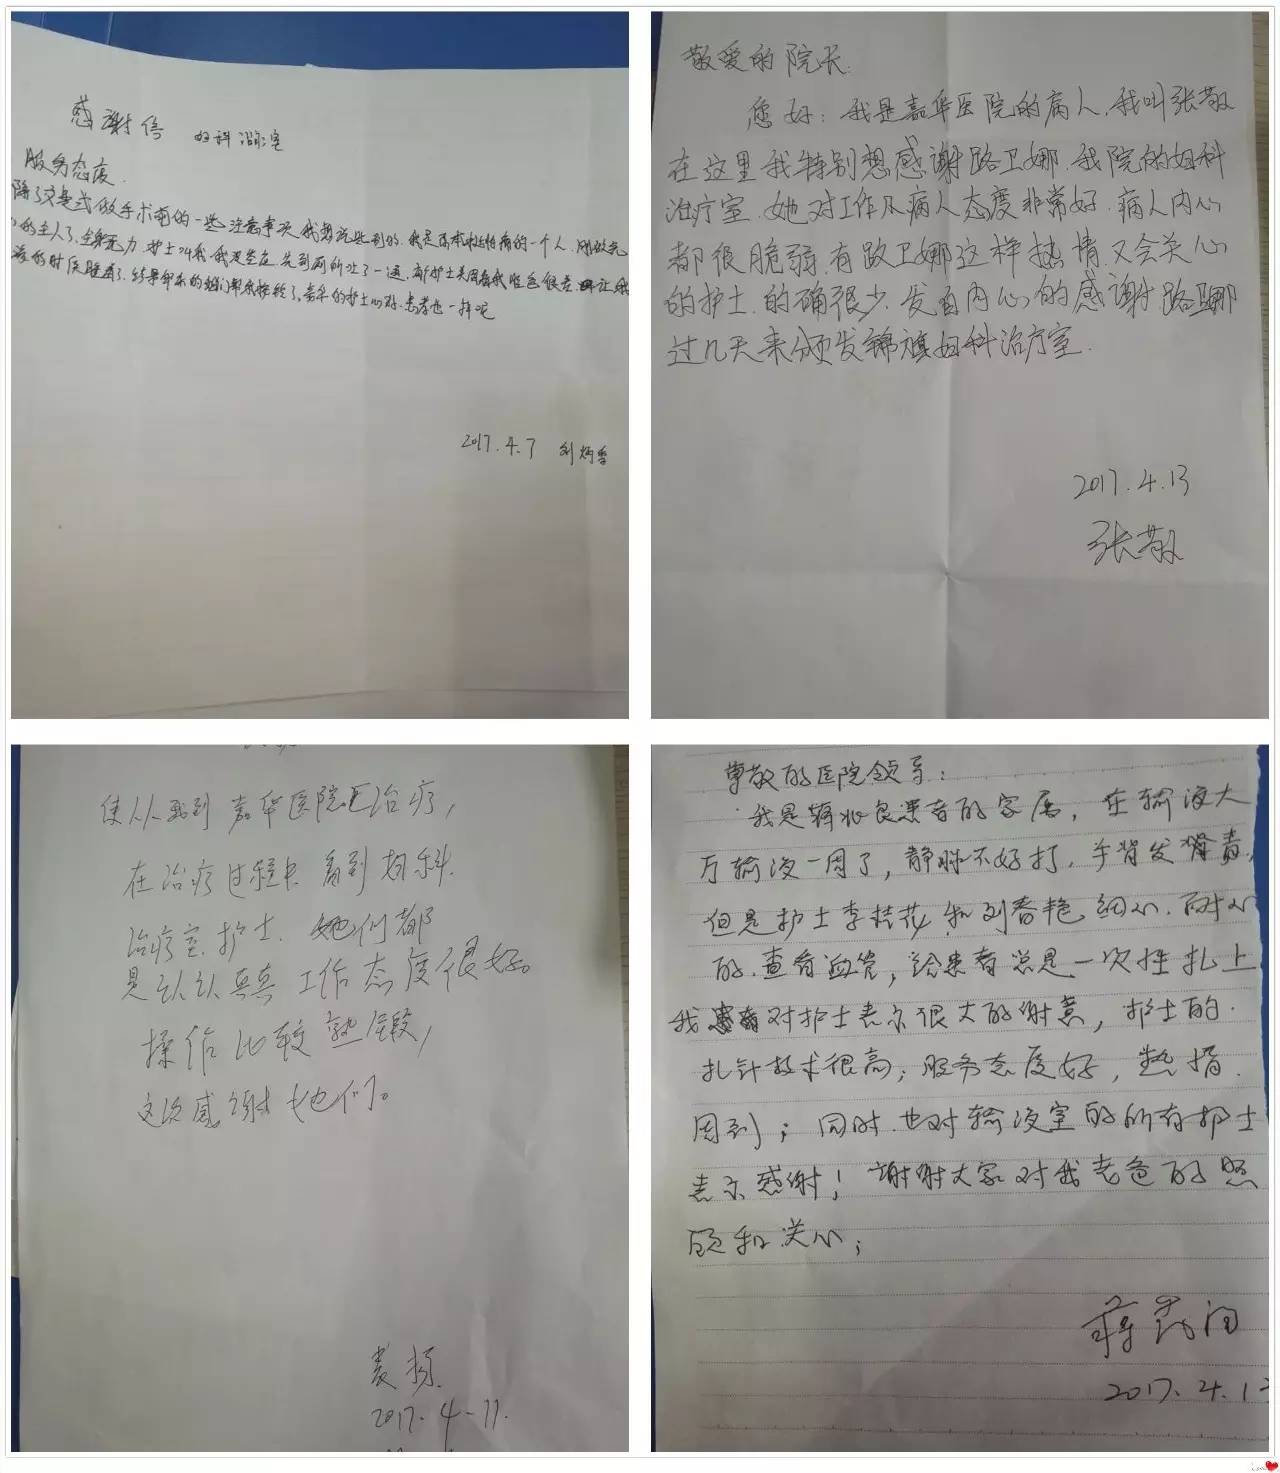 感谢信 妇科治疗室
服务态度
除了交是我做手术前的一些注意事项,我想说些别的.我是原本挺怕痛的一个人,刚做完
全身无力.护士叫我,我没坐在,先到厕所吐了一通,有护士来问看我脸色很差,让我
的时候睡着了,结果邻床的姐们帮我按铃了,嘉华的护士心好,患者也一样呢
2017.4.7 刘炳香
敬爱的院长.
您好:我是嘉华医院的病人,我叫张敬
在这里我特别想感谢路卫娜.我院的妇科
治疗室.她对工作及病人态度非常好.病人内心
都很脆弱,有路卫娜这样热情又会关心
的护士.的确很少.发自内心的感谢路卫娜
过几天来颁发锦旗妇科治疗室.
2017.4.13
张敬
自从我到嘉华医院治疗,
在治疗过程中看到妇科
治疗室护士.她们都
是认认真真工作态度很好。
操作比较熟锻,
这次感谢她们。
2017.4-11.
尊敬的医院领导:
我是蒋兆良患者的家属,在输液大
厅输液一周了,静脉不好打,手背发青,
但是护士李桂花和刘春艳细心.耐心
的.查看血管,给患者总是一次性扎上
我对护士表示很大的谢意,护士的.
扎针技术很高;服务态度好,热情.
周到;同时也对输液室的所有护士
表示感谢!谢谢大家对我老爸的照
顾和关心;
2017.4.1